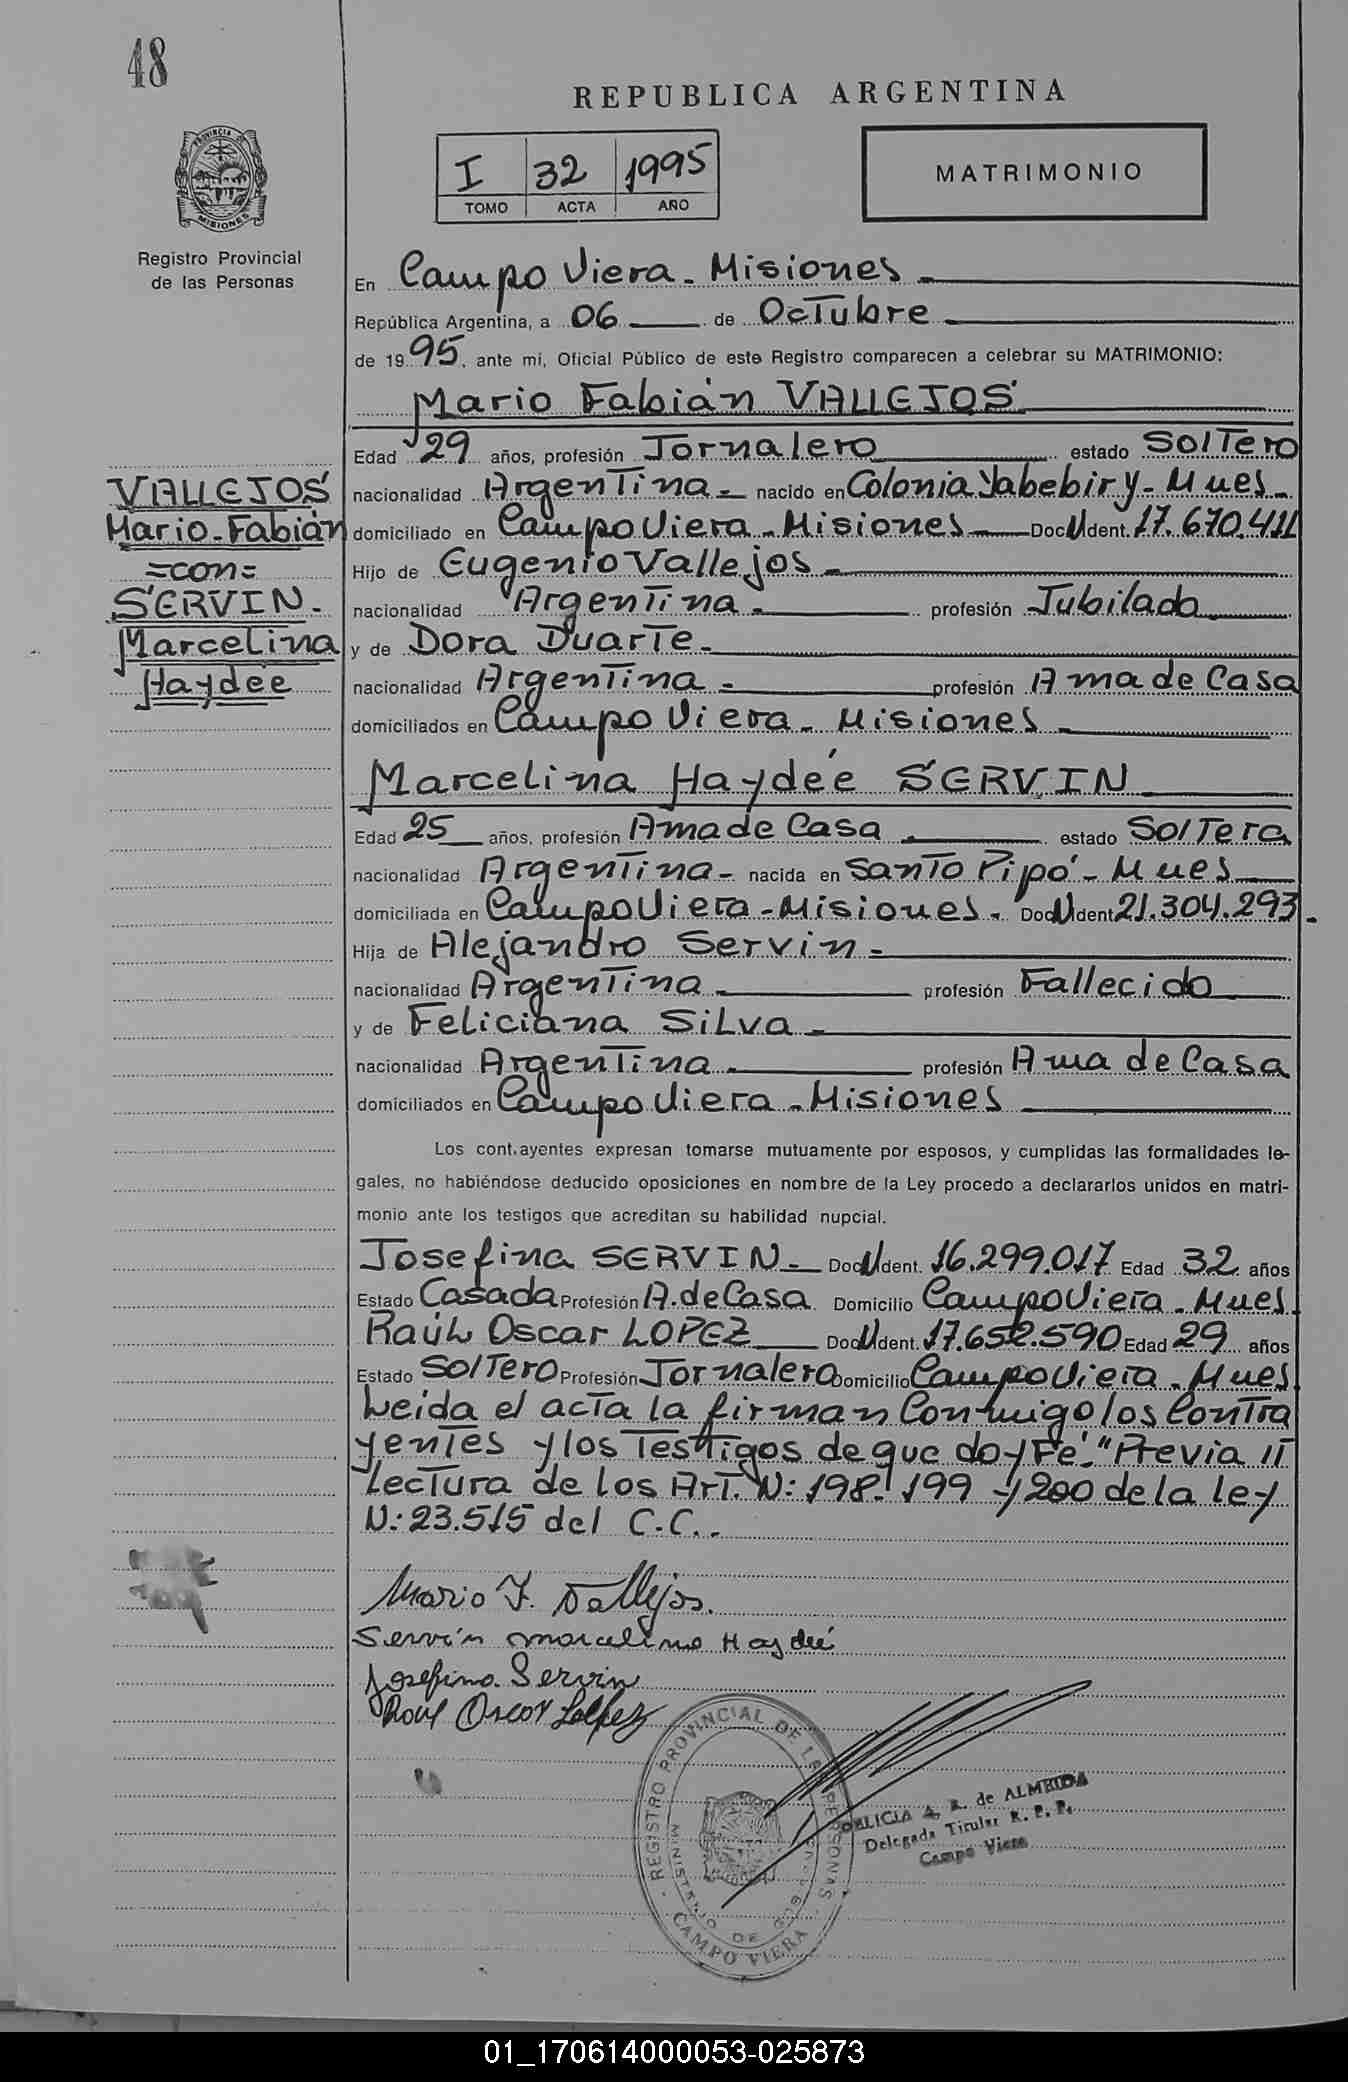 48
REPUBLICA ARGENTINA
PROVINCIA DE MISIONES
I 32 1995
TOMO ACTA AÑO
MATRIMONIO
Registro Provincial
de las Personas
En Campo Viera - Misiones
República Argentina, a 06 de Octubre
de 1995, ante mi, Oficial Público de este Registro comparecen a celebrar su MATRIMONIO:
Mario Fabián VALLEJOS
Edad 29 años, profesión Jornalero estado Soltero
VALLEJOS
Mario-Fabián
=con=
SERVIN-
Marcelina
Haydée
nacionalidad Argentina - nacido en Colonia Yabebiry - Mnes -
domiciliado en Campo Viera - Misiones Doc N Ident. 17.670.411
Hijo de Eugenio Vallejos -
nacionalidad Argentina - profesión Jubilado
y de Dora Duarte -
nacionalidad Argentina - profesión Ama de Casa
domiciliados en Campo Viera - Misiones
Marcelina Haydée SERVIN
Edad 25 años, profesión Ama de Casa estado Soltera
nacionalidad Argentina - nacida en Santo Pipó - Mnes
domiciliada en Campo Viera - Misiones - Doc N Ident 21.304.293.
Hija de Alejandro Servin -
nacionalidad Argentina profesión Fallecido
y de Feliciana Silva -
nacionalidad Argentina profesión Ama de Casa
domiciliados en Campo Viera - Misiones
Los cont.ayentes expresan tomarse mutuamente por esposos, y cumplidas las formalidades le-
gales, no habiéndose deducido oposiciones en nombre de la Ley procedo a declararlos unidos en matri-
monio ante los testigos que acreditan su habilidad nupcial.
Josefina SERVIN - Doc N Ident. 16.299.017 Edad 32 años
Estado Casada Profesión A. de Casa Domicilio Campo Viera - Mnes.
Raúl Oscar LOPEZ Doc N Ident. 17.652.590 Edad 29 años
Estado Soltero Profesión Jornalero Domicilio Campo Viera - Mnes
Leida el acta la firman Conmigo los Contra
yentes y los Testigos de que doy Fé. "Previa
Lectura de los Art. N: 198. 199 y 200 de la ley
N: 23.515 del C.C..
Mario F. Vallejos.
Servin Marcelina Haydeé
Josefina Servin
Raul Oscar Lopez
REGISTRO PROVINCIAL DE LAS PERSONAS
MINISTERIO DE GOB
CAMPO VIERA
A. R. de ALMEIDA
Delegada Titular R. P. P.
Campo Viera
01_170614000053-025873